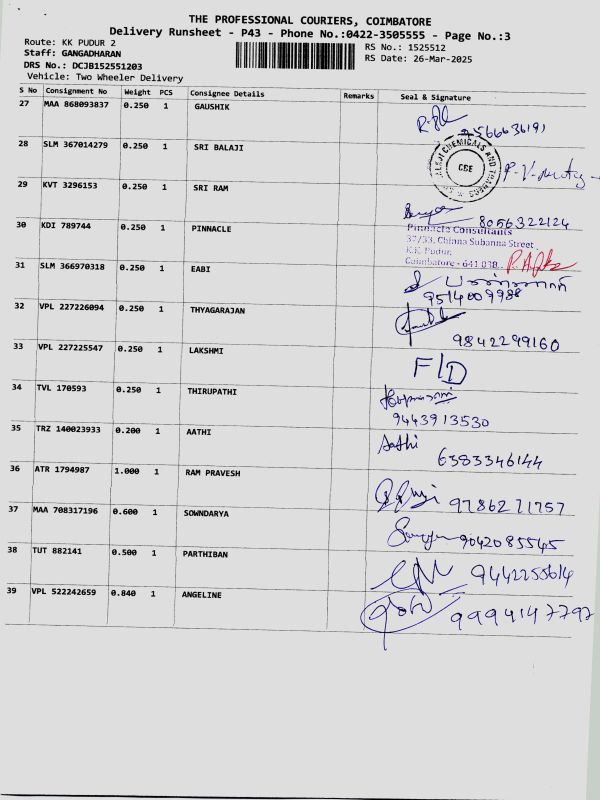 THE PROFESSIONAL COURIERS, COIMBATORE
Delivery Runsheet - P43 - Phone No.:0422-3505555 - Page No.:3
Route: KK PUDUR 2
Staff: GANGADHARAN
DRS No.: DCJB152551203
Vehicle: Two Wheeler Delivery
RS No.: 1525512
RS Date: 26-Mar-2025
S No Consignment No Weight PCS Consignee Details Remarks Seal & Signature
27 MAA 868093837 0.250 1 GAUSHIK
9566636191
28 SLM 367014279 0.250 1 SRI BALAJI
CHEMICALS AND
CBE
29 KVT 3296153 0.250 1 SRI RAM
8056322124
30 KDI 789744 0.250 1 PINNACLE
Pinnacle Consultants
37/33, Chinna Subanna Street
K.K. Pudur,
Coimbatore - 641 038.
31 SLM 366970318 0.250 1 EABI
9514009988
32 VPL 227226094 0.250 1 THYAGARAJAN
9842299160
33 VPL 227225547 0.250 1 LAKSHMI
F/D
34 TVL 170593 0.250 1 THIRUPATHI
9443913530
35 TRZ 140023933 0.200 1 AATHI
Aathi
6383346144
36 ATR 1794987 1.000 1 RAM PRAVESH
9786271757
37 MAA 708317196 0.600 1 SOWNDARYA
9042085545
38 TUT 882141 0.500 1 PARTHIBAN
9442255614
39 VPL 522242659 0.840 1 ANGELINE
9994147797